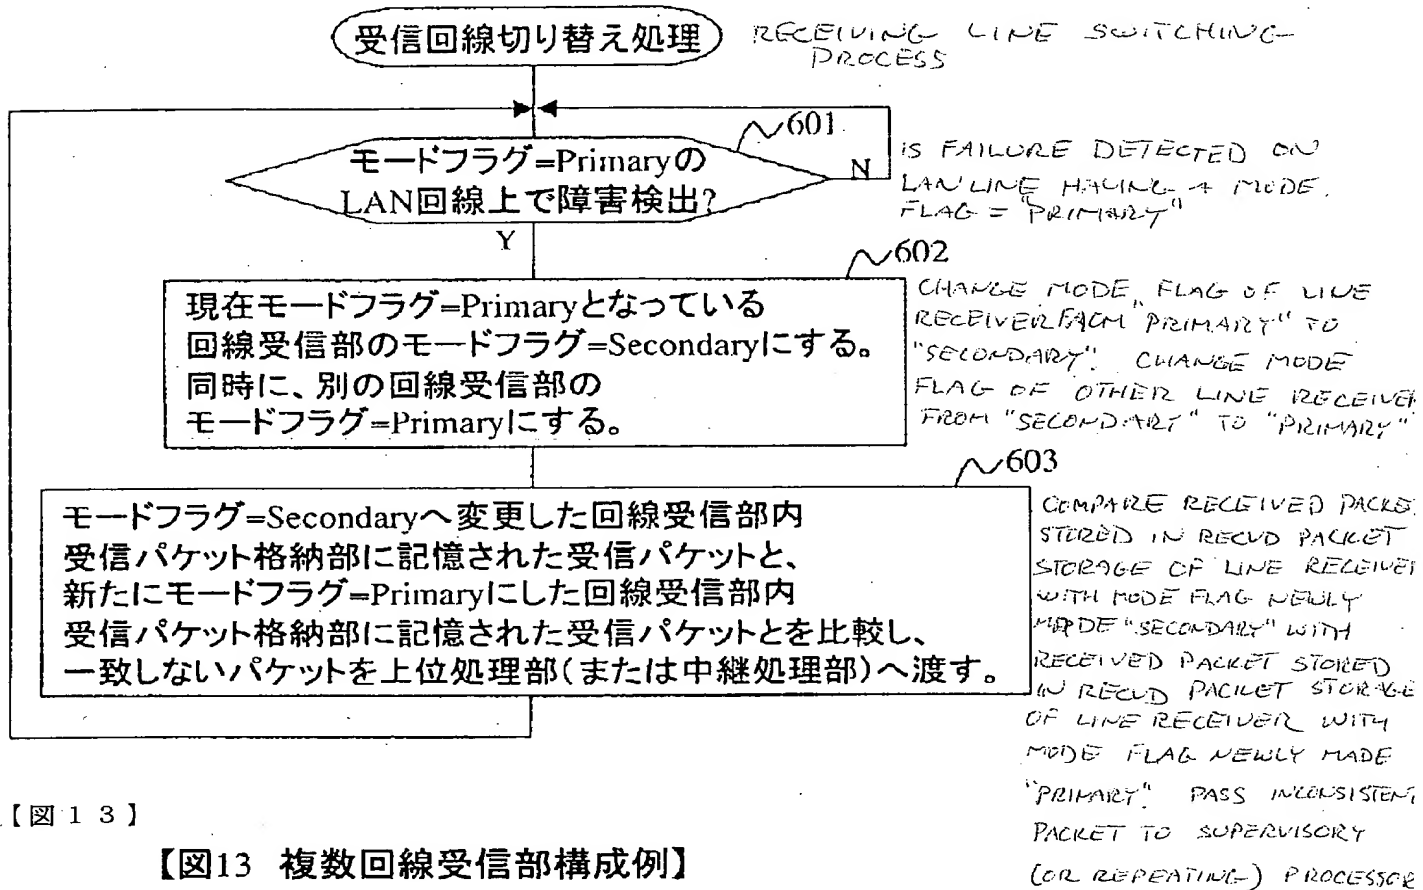 受信回線切り替え処理
RECEIVING LINE SWITCHING
PROCESS
601
モードフラグ=Primaryの
LAN回線上で障害検出?
N
Y
IS FAILURE DETECTED ON
LAN LINE HAVING A MODE
FLAG = "PRIMARY"
602
現在モードフラグ=Primaryとなっている
回線受信部のモードフラグ=Secondaryにする。
同時に、別の回線受信部の
モードフラグ=Primaryにする。
CHANGE MODE FLAG OF LINE
RECEIVER FROM "PRIMARY" TO
"SECONDARY". CHANGE MODE
FLAG OF OTHER LINE RECEIVER
FROM "SECONDARY" TO "PRIMARY"
603
モードフラグ=Secondaryへ変更した回線受信部内
受信パケット格納部に記憶された受信パケットと、
新たにモードフラグ=Primaryにした回線受信部内
受信パケット格納部に記憶された受信パケットとを比較し、
一致しないパケットを上位処理部(または中継処理部)へ渡す。
COMPARE RECEIVED PACKET
STORED IN RECVD PACKET
STORAGE OF LINE RECEIVER
WITH MODE FLAG NEWLY
MADE "SECONDARY" WITH
RECEIVED PACKET STORED
IN RECVD PACKET STORAGE
OF LINE RECEIVER WITH
MODE FLAG NEWLY MADE
"PRIMARY". PASS INCONSISTENT
PACKET TO SUPERVISORY
(OR REPEATING) PROCESSOR
【図13】
【図13 複数回線受信部構成例】